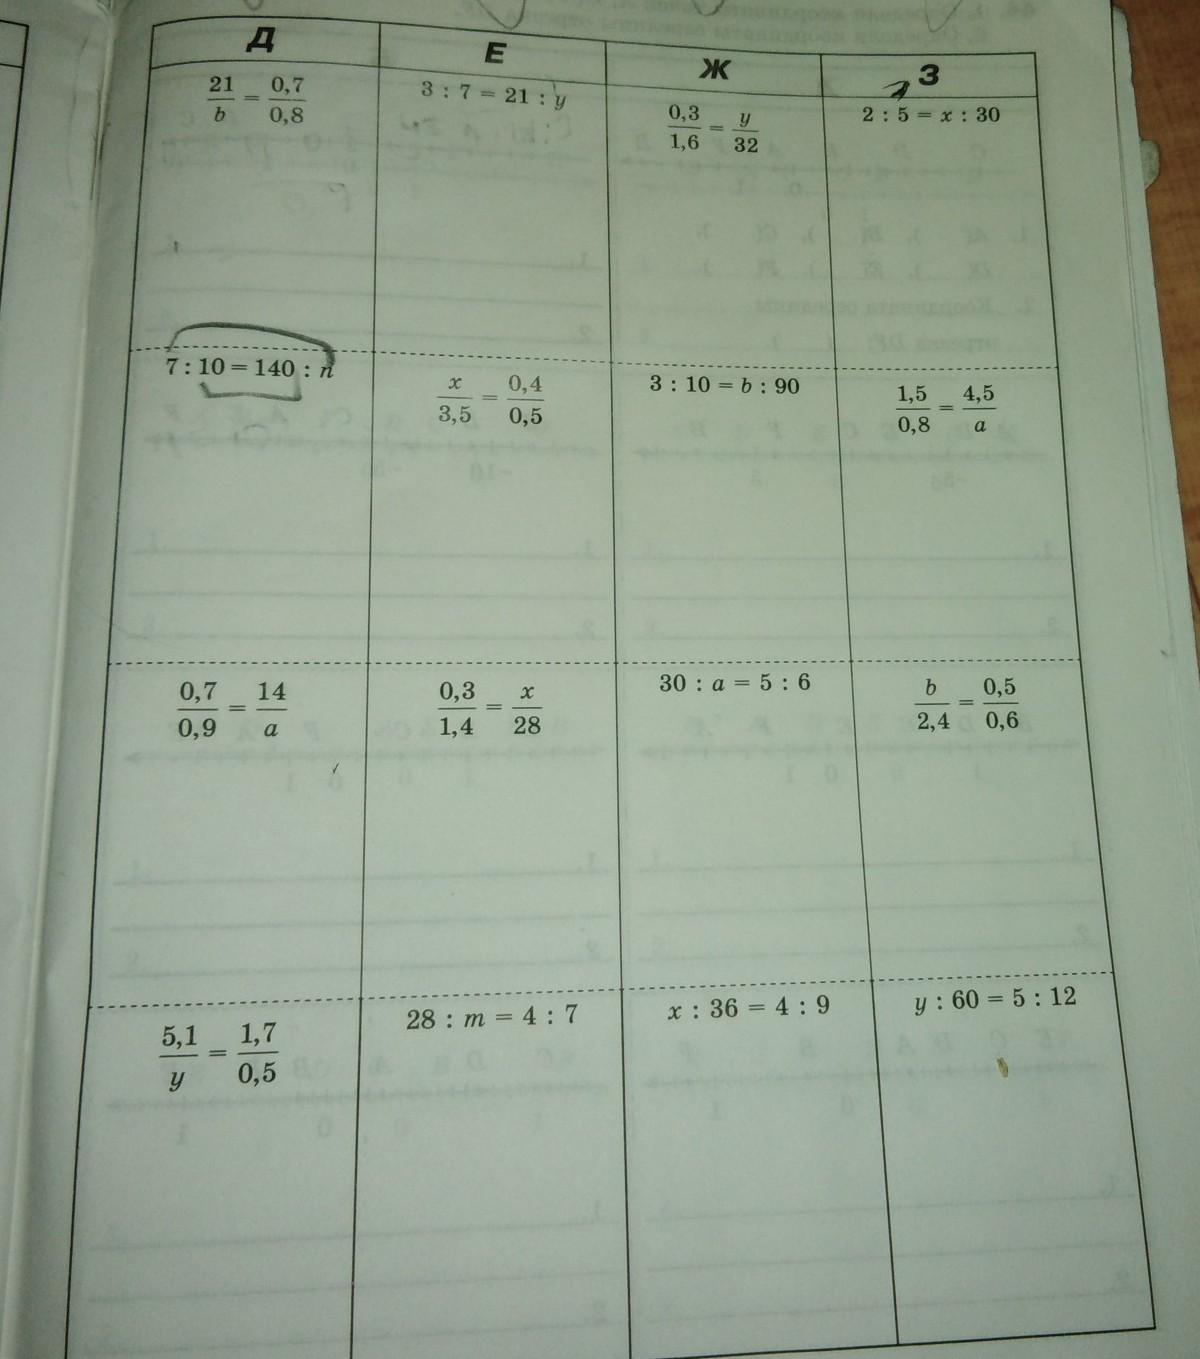 Д Е Ж З
21/b = 0,7/0,8
3 : 7 = 21 : y
0,3/1,6 = y/32
2 : 5 = x : 30
7 : 10 = 140 : n
x/3,5 = 0,4/0,5
3 : 10 = b : 90
1,5/0,8 = 4,5/a
0,7/0,9 = 14/a
0,3/1,4 = x/28
30 : a = 5 : 6
b/2,4 = 0,5/0,6
5,1/y = 1,7/0,5
28 : m = 4 : 7
x : 36 = 4 : 9
y : 60 = 5 : 12